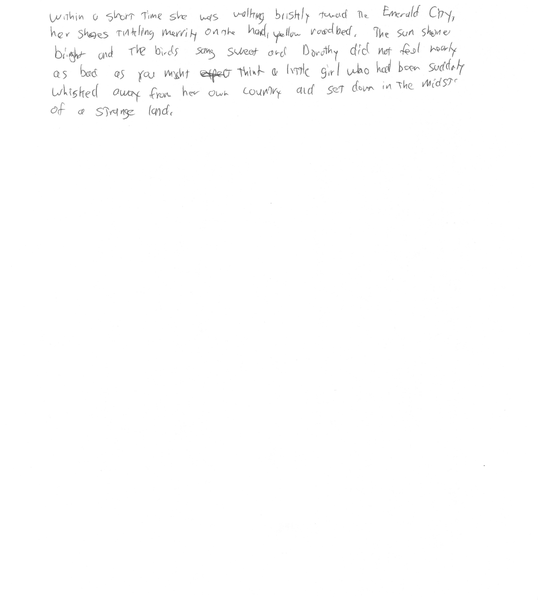 Within a short time she was walking briskly toward the Emerald City,
her shoes tinkling merrily on the hard, yellow roadbed. The sun shone
bright and the birds sang sweet and Dorothy did not feel nearly
as bad as you might expect think a little girl who had been suddenly
whisked away from her own country and set down in the midst
of a strange land.